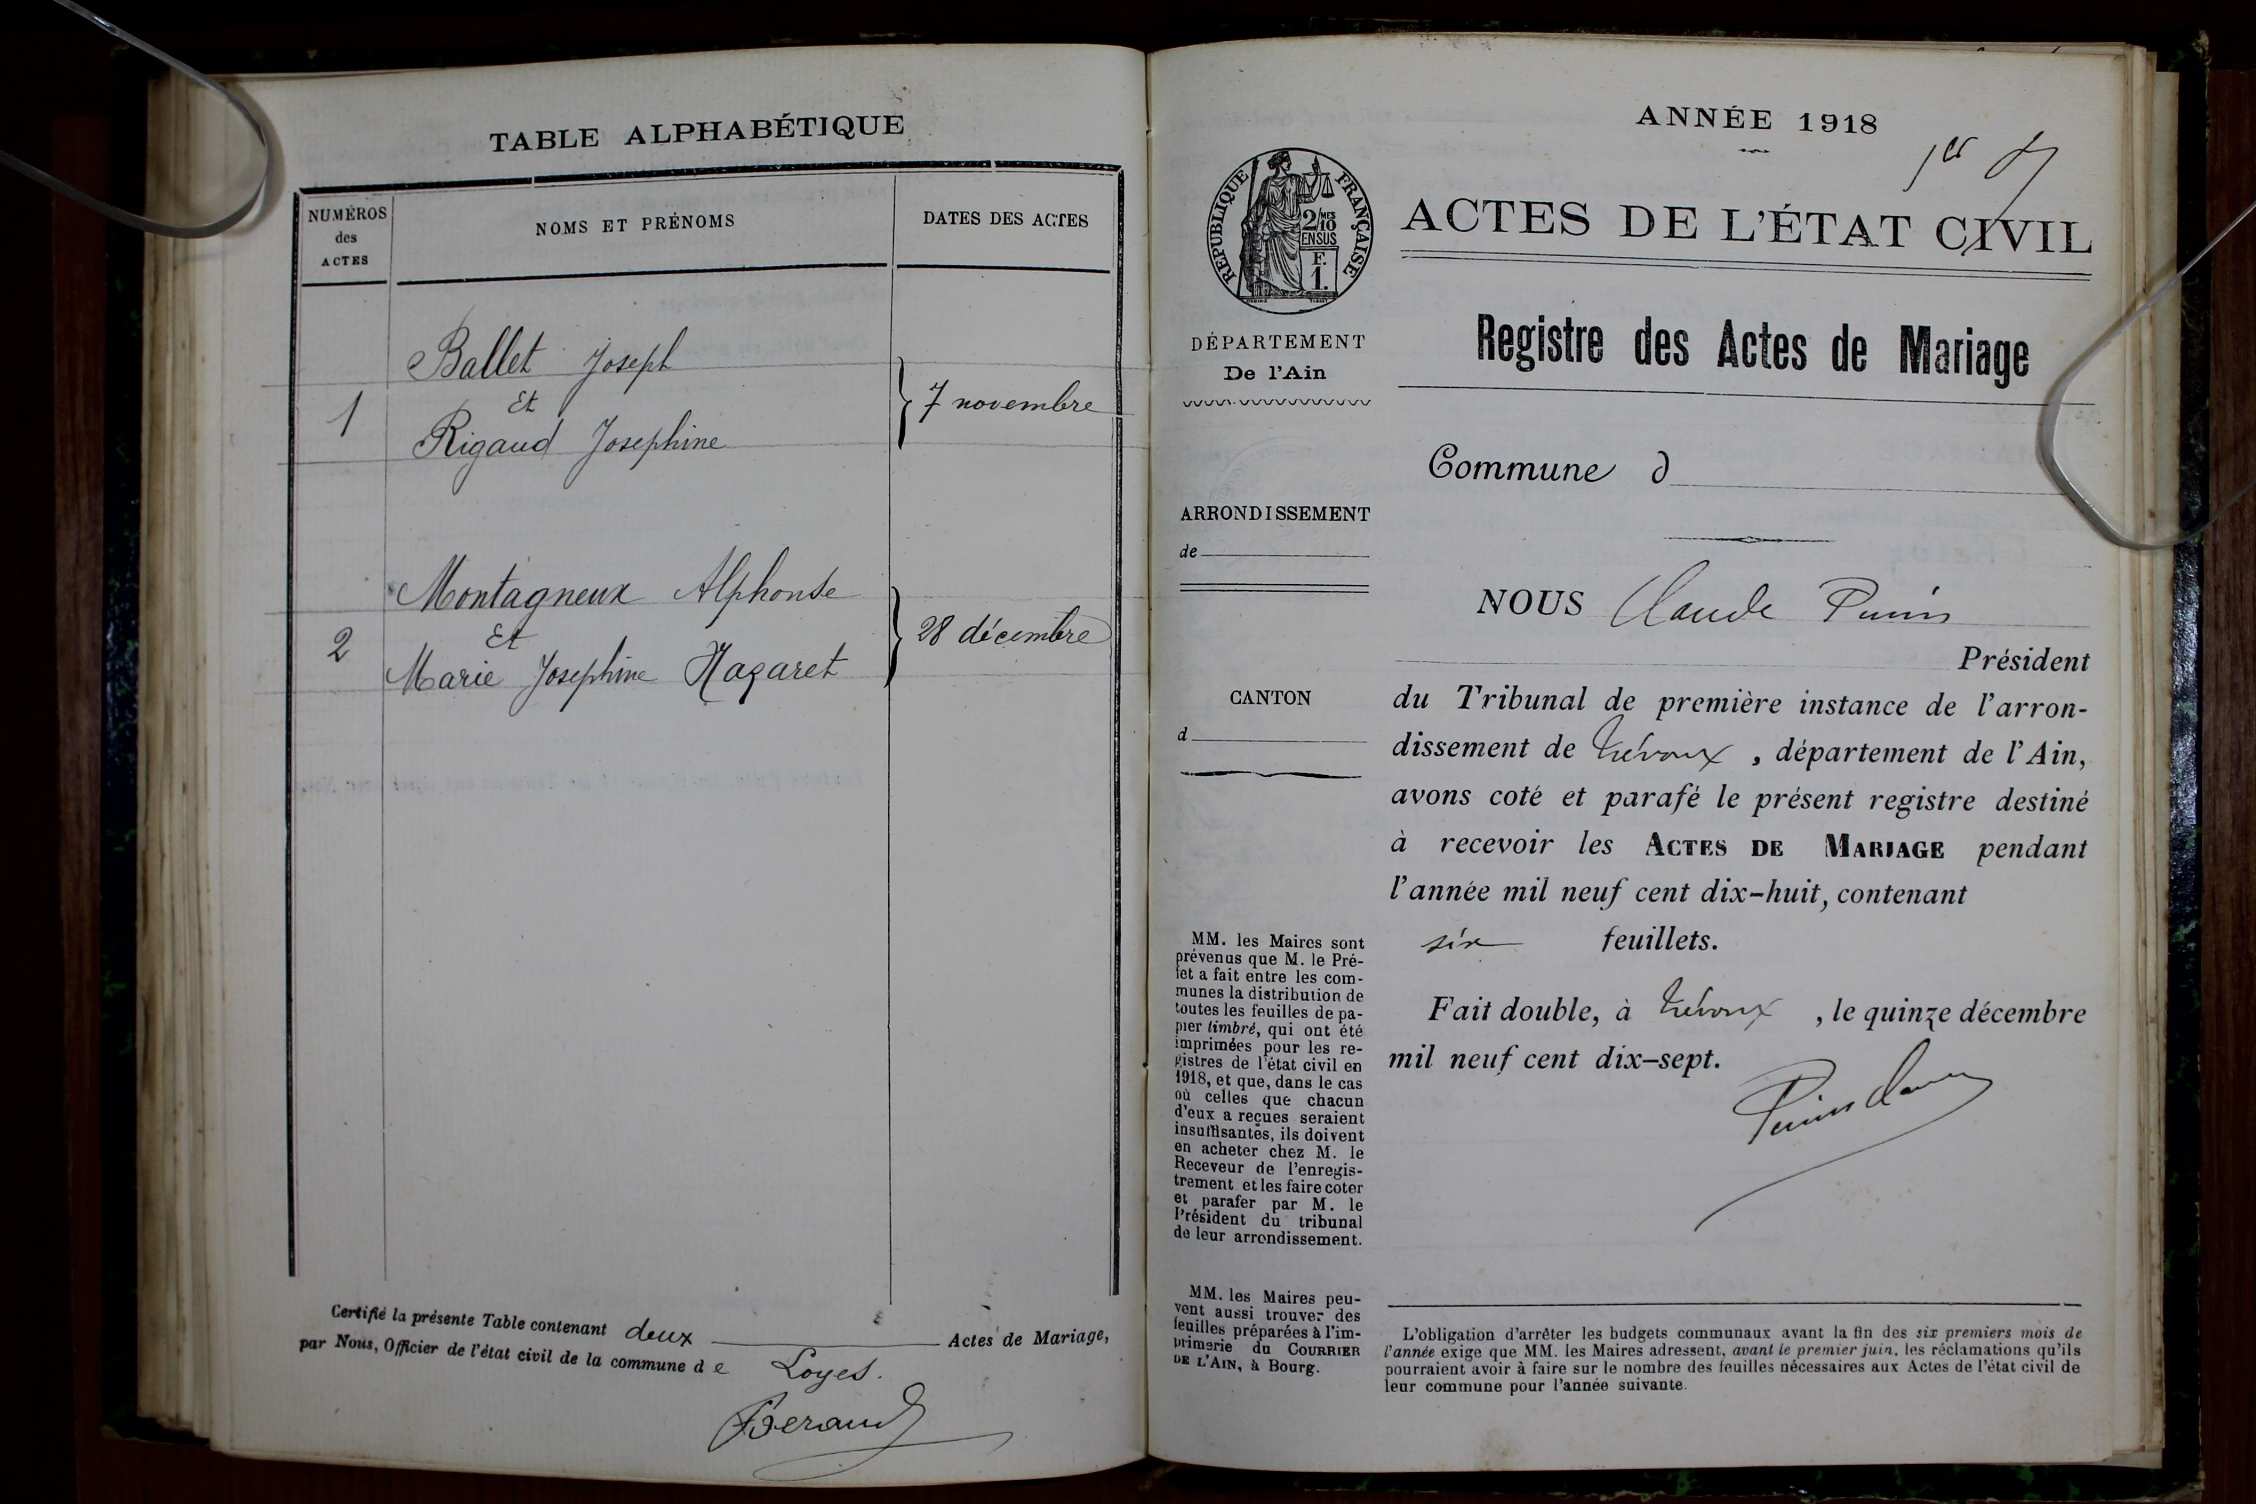 TABLE ALPHABÉTIQUE
NUMÉROS
des
ACTES
NOMS ET PRÉNOMS
DATES DES ACTES
Ballet Joseph
1
Et
7 novembre
Rigaud Josephine
Montagneux Alphonse
2
Et
28 décembre
Marie Josephine Nazaret
Certifié la présente Table contenant deux Actes de Mariage,
par Nous, Officier de l'état civil de la commune de Loyes.
Beraud
ANNÉE 1918
1er
RÉPUBLIQUE FRANÇAISE
2/MES
10
EN SUS
F.
1.
ACTES DE L'ÉTAT CIVIL
DÉPARTEMENT
De l'Ain
Registre des Actes de Mariage
Commune d
ARRONDISSEMENT
de
CANTON
d
NOUS Claude
Président
du Tribunal de première instance de l'arron-
dissement de Trévoux, département de l'Ain,
avons coté et parafé le présent registre destiné
à recevoir les ACTES DE MARIAGE pendant
l'année mil neuf cent dix-huit, contenant
six feuillets.
Fait double, à Trévoux, le quinze décembre
mil neuf cent dix-sept.
MM. les Maires sont
prévenus que M. le Pré-
fet a fait entre les com-
munes la distribution de
toutes les feuilles de pa-
pier timbré, qui ont été
imprimées pour les re-
gistres de l'état civil en
1918, et que, dans le cas
où celles que chacun
d'eux a reçues seraient
insuffisantes, ils doivent
en acheter chez M. le
Receveur de l'enregis-
trement et les faire coter
et parafer par M. le
Président du tribunal
de leur arrondissement.
MM. les Maires peu-
vent aussi trouver des
feuilles préparées à l'im-
primerie du COURRIER
DE L'AIN, à Bourg.
L'obligation d'arrêter les budgets communaux avant la fin des six premiers mois de
l'année exige que MM. les Maires adressent, avant le premier juin, les réclamations qu'ils
pourraient avoir à faire sur le nombre des feuilles nécessaires aux Actes de l'état civil de
leur commune pour l'année suivante.